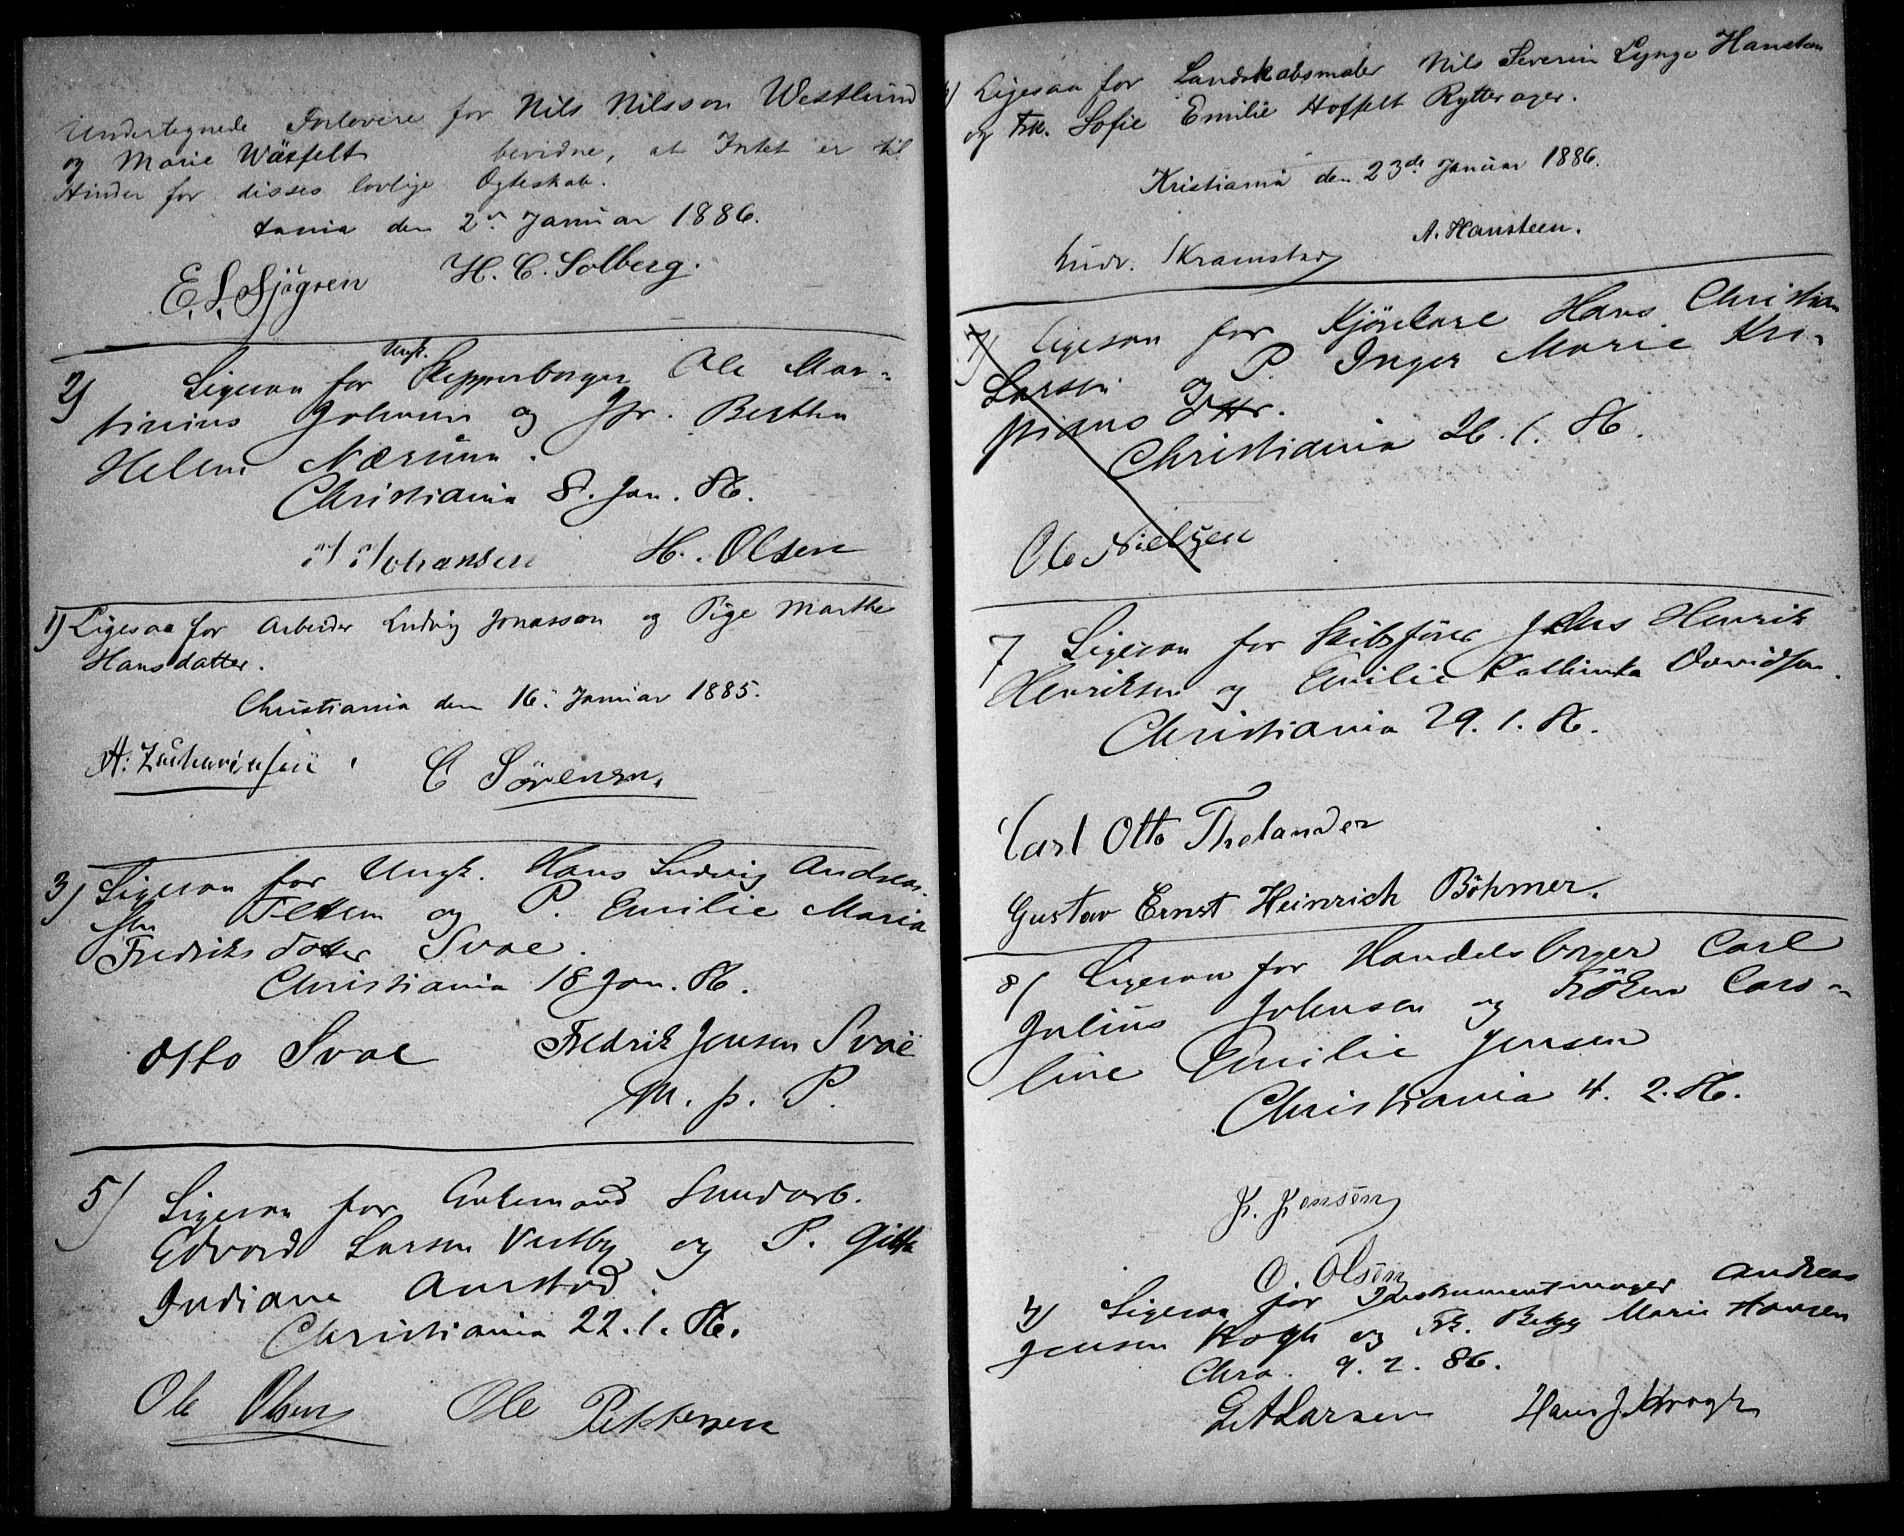 Undertegnede Forlovere for Nils Nilsson Westlund
og Marie Wäsfelt bevidne, at Intet er til
Hinder for disses lovlige Ægteskab.
tania den 2n Januar 1886.
E. L. Sjögren H. C. Solberg.
2) Ligesaa for Ungk. Skipperborger Ole Mar-
tinius Johnsen og Jfr. Bertha
Helene Nærum.
Christiania 8. Jan. 86.
Johansen H. Olsen
1) Ligesaa for Arbeider Ludvig Jonasson og Pige Marthe
Hansdatter.
Christiania den 16. Januar 1885.
A. Zachariassen C Sørensen.
3) Ligesaa for Ungk. Hans Ludvig Andreas-
sen og P. Emilie Maria
Fredriksdatter Svae.
Christiania 18 Jan. 86.
Otto Svae Fredrik Jensen Svae
M. p. P.
5) Ligesaa for Enkemand Smedarb.
Edvard Larsen Vestby og P. Gitta
Indiane Aurstad.
Christiania 22. 1. 86.
Ole Olsen Ole Pettersen
Ligesaa for Landskabsmaler Nils Severin Lynge Hansteen
og Frk. Sofie Emilie Hoffelt Rytterager.
Kristiania den 23de Januar 1886.
A. Hansteen.
Ludv. Skramstad
7) Ligesaa for Kjørekarl Hans Christian
Larsen og P. Inger Marie Kri-
spians Dtr.
Christiania 26. 1. 86.
Ole Nielsen
7 Ligesaa for Skibsfører Jens Henrik
Henriksen og Emilie Kathinka Davidsen.
Christiania 29. 1. 86.
Carl Otto Thelander
Gustav Ernst Heinrich Böhmer.
8) Ligesaa for Handelsborger Carl
Julius Johnsen og Frøken Caro-
line Emilie Jensen
Christiania 4. 2. 86.
J. Jensen
O. Olsen
4) Ligesaa for Instrumentmager Andreas
Jensen Krogh og Frk. Betzy Marie Hansen
Chra. 9. 2. 86.
Larsen Hans J. Krogh